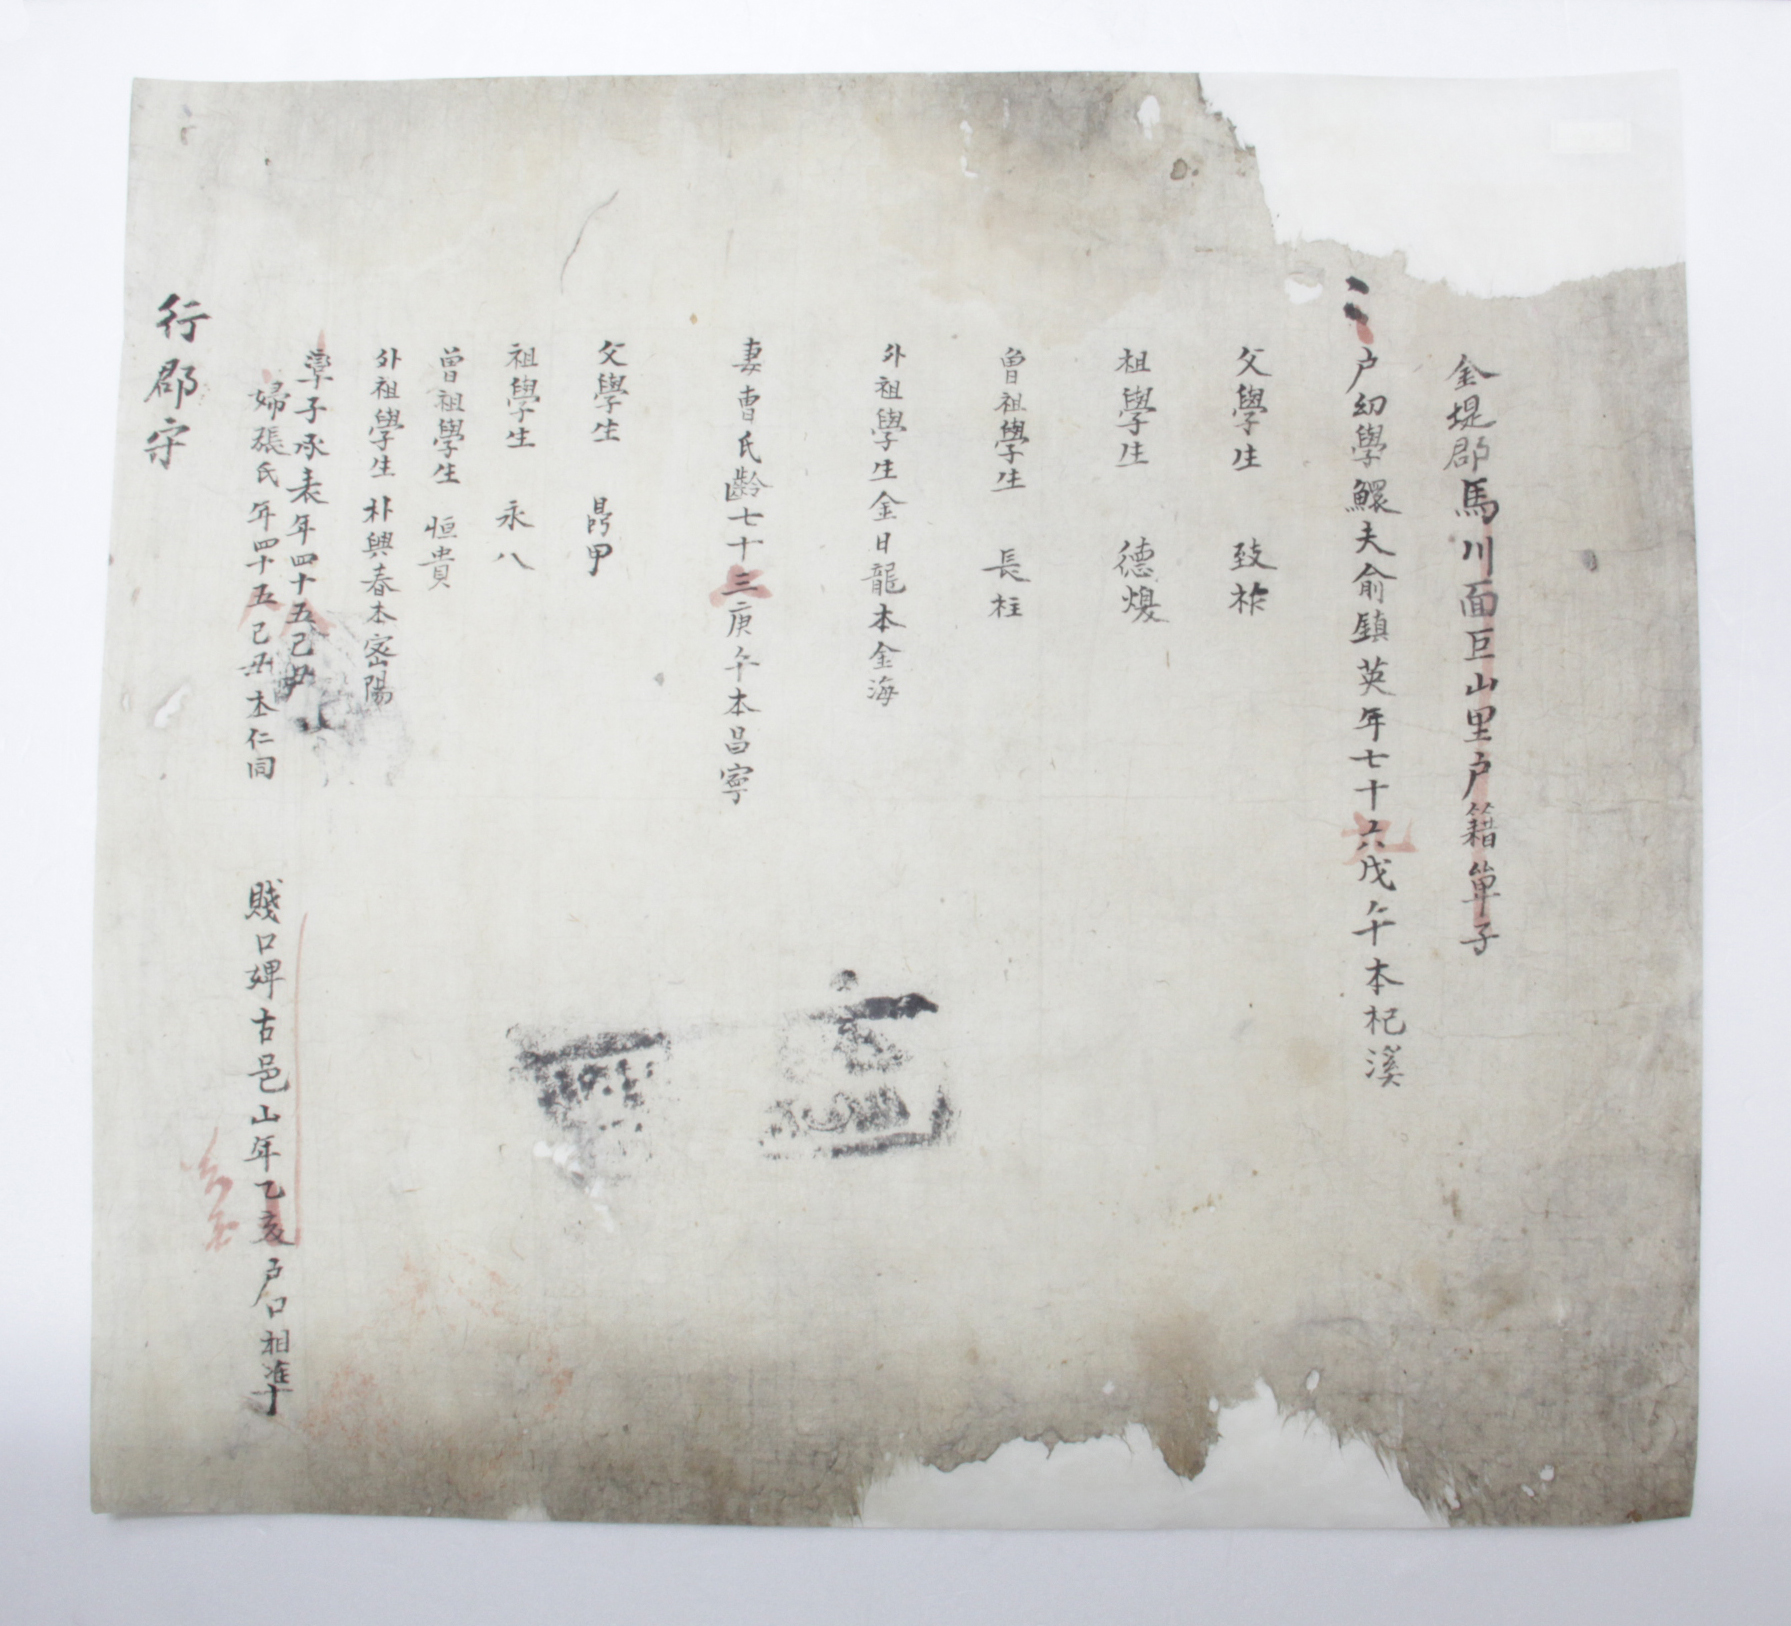 金堤郡馬川面巨山里戶籍單子
戶幼學鰥夫俞鎭英年七十六戊午本杞溪
父學生 致祚
祖學生 德煥
曾祖學生 長柱
外祖學生金日龍本金海
妻曺氏齡七十三庚午本昌寧
父學生 昌甲
祖學生 永八
曾祖學生 恒貴
外祖學生朴興春本密陽
率子承表年四十五己丑
婦張氏年四十五己丑本仁同
賤口婢古邑山年乙亥戶口相準
行郡守